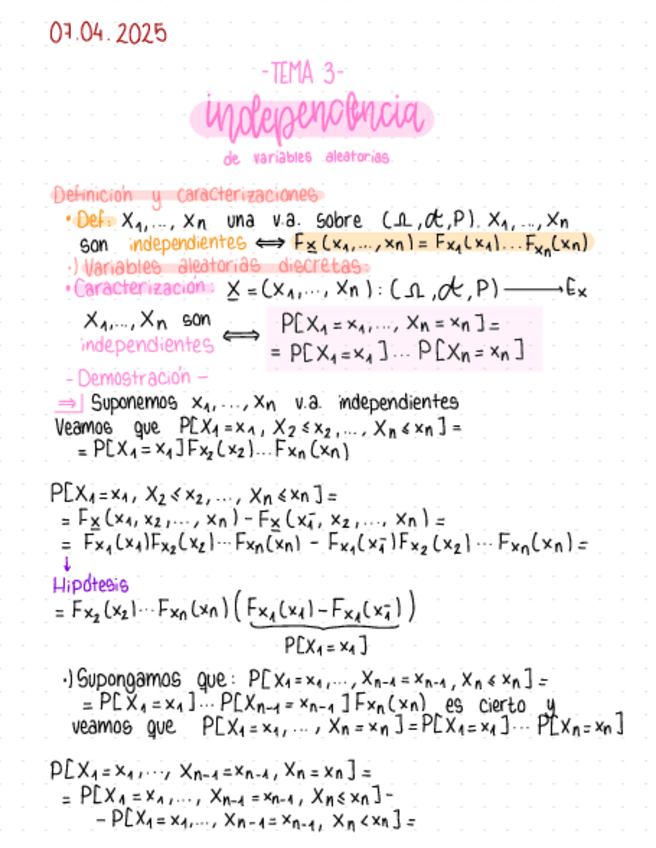 07.04.2025
-TEMA 3-
independencia
de variables aleatorias
Definición y caracterizaciones
• Def: X₁,..., Xn una v.a. sobre (Ω, 𝒜, P). X₁,..., Xn
son independientes ⟺ F_X(x₁,...,xn) = F_X₁(x₁)...F_Xn(xn)
·) Variables aleatorias discretas:
• Caracterización: X = (X₁,..., Xn) : (Ω, 𝒜, P) ⟶ E_X
X₁,..., Xn son
independientes ⟺ P[X₁ = x₁,..., Xn = xn] =
= P[X₁ = x₁]... P[Xn = xn]
- Demostración -
⇒| Suponemos X₁,..., Xn v.a. independientes
Veamos que P[X₁ = x₁, X₂ ≤ x₂,..., Xn ≤ xn] =
= P[X₁ = x₁]F_X₂(x₂)...F_Xn(xn)
P[X₁ = x₁, X₂ ≤ x₂,..., Xn ≤ xn] =
= F_X(x₁, x₂,..., xn) - F_X(x₁⁻, x₂,..., xn) =
= F_X₁(x₁)F_X₂(x₂)...F_Xn(xn) - F_X₁(x₁⁻)F_X₂(x₂)...F_Xn(xn) =
↓
Hipótesis
= F_X₂(x₂)...F_Xn(xn)(F_X₁(x₁) - F_X₁(x₁⁻))
P[X₁ = x₁]
·) Supongamos que: P[X₁ = x₁,..., Xn-1 = xn-1, Xn ≤ xn] =
= P[X₁ = x₁]... P[Xn-1 = xn-1]F_Xn(xn) es cierto y
veamos que P[X₁ = x₁,..., Xn = xn] = P[X₁ = x₁]... P[Xn = xn]
P[X₁ = x₁,..., Xn-1 = xn-1, Xn = xn] =
= P[X₁ = x₁,..., Xn-1 = xn-1, Xn ≤ xn] -
- P[X₁ = x₁,..., Xn-1 = xn-1, Xn < xn] =